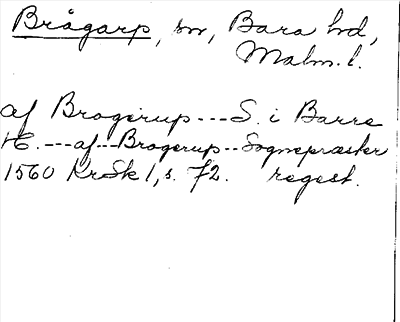 Brågarp, sn, Bara hd,
Malm. l.
af Brogerup---S. i Barre
H.---af---Brogerup--Sognepræster
1560 KrSk 1, s. 72. regest.